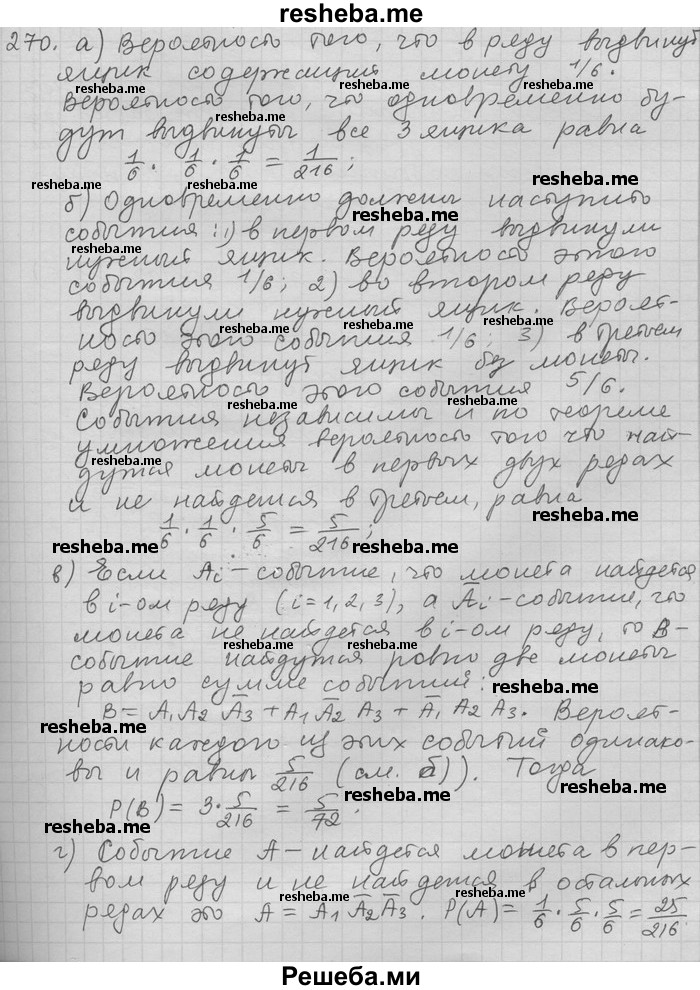 resheba.me
270. а) Вероятность того, что в ряду выдвинут
ящик содержащий монету 1/6.
resheba.me resheba.me
Вероятность того, что одновременно бу-
resheba.me
дут выдвинуты все 3 ящика равна
1/6 · 1/6 · 1/6 = 1/216;
resheba.me resheba.me
б) Одновременно должны наступить
resheba.me
события: 1) в первом ряду выдвинули
resheba.me
нужный ящик. Вероятность этого
события 1/6; 2) во втором ряду
выдвинули нужный ящик. Вероят-
resheba.me resheba.me
ность этого события 1/6; 3) в третьем
ряду выдвинут ящик без монеты.
Вероятность этого события 5/6.
resheba.me
События независимы и по теореме
умножения вероятность того что най-
resheba.me
дутся монеты в первых двух рядах
и не найдется в третьем, равна
resheba.me
1/6 · 1/6 · 5/6 = 5/216;
resheba.me resheba.me
в) Если Ai – событие, что монета найдется
в i-ом ряду (i=1,2,3), а A̅i – событие, что
resheba.me
монета не найдется в i-ом ряду, то B –
resheba.me
событие найдутся ровно две монеты
resheba.me
равно сумме событий:
B = A1 A2 A̅3 + A1 A̅2 A3 + A̅1 A2 A3. Вероят-
resheba.me
ности каждого из этих событий одинако-
вы и равны 5/216 (см. б)). Тогда
resheba.me resheba.me
P(B) = 3 · 5/216 = 5/72.
resheba.me
г) Событие A – найдется монета в пер-
resheba.me
вом ряду и не найдется в остальных
resheba.me resheba.me
рядах это A = A1 A̅2 A̅3. P(A) = 1/6 · 5/6 · 5/6 = 25/216
Решеба.ми